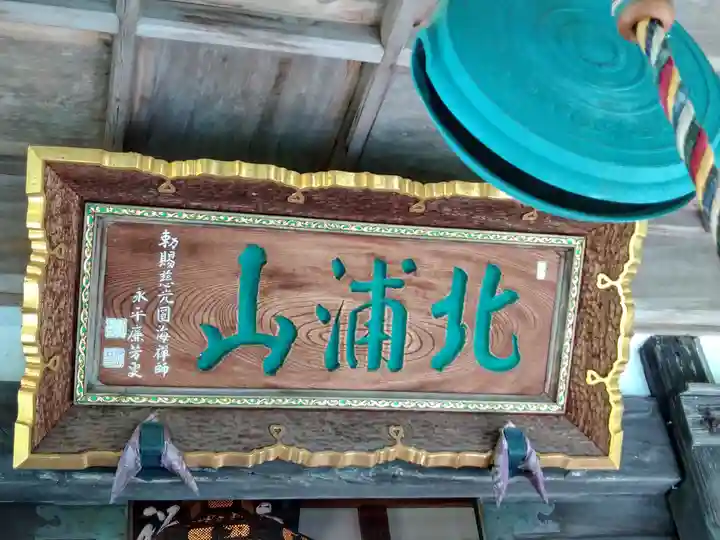 北浦山
勅賜慈光圓海禅師
永平廉芳叟